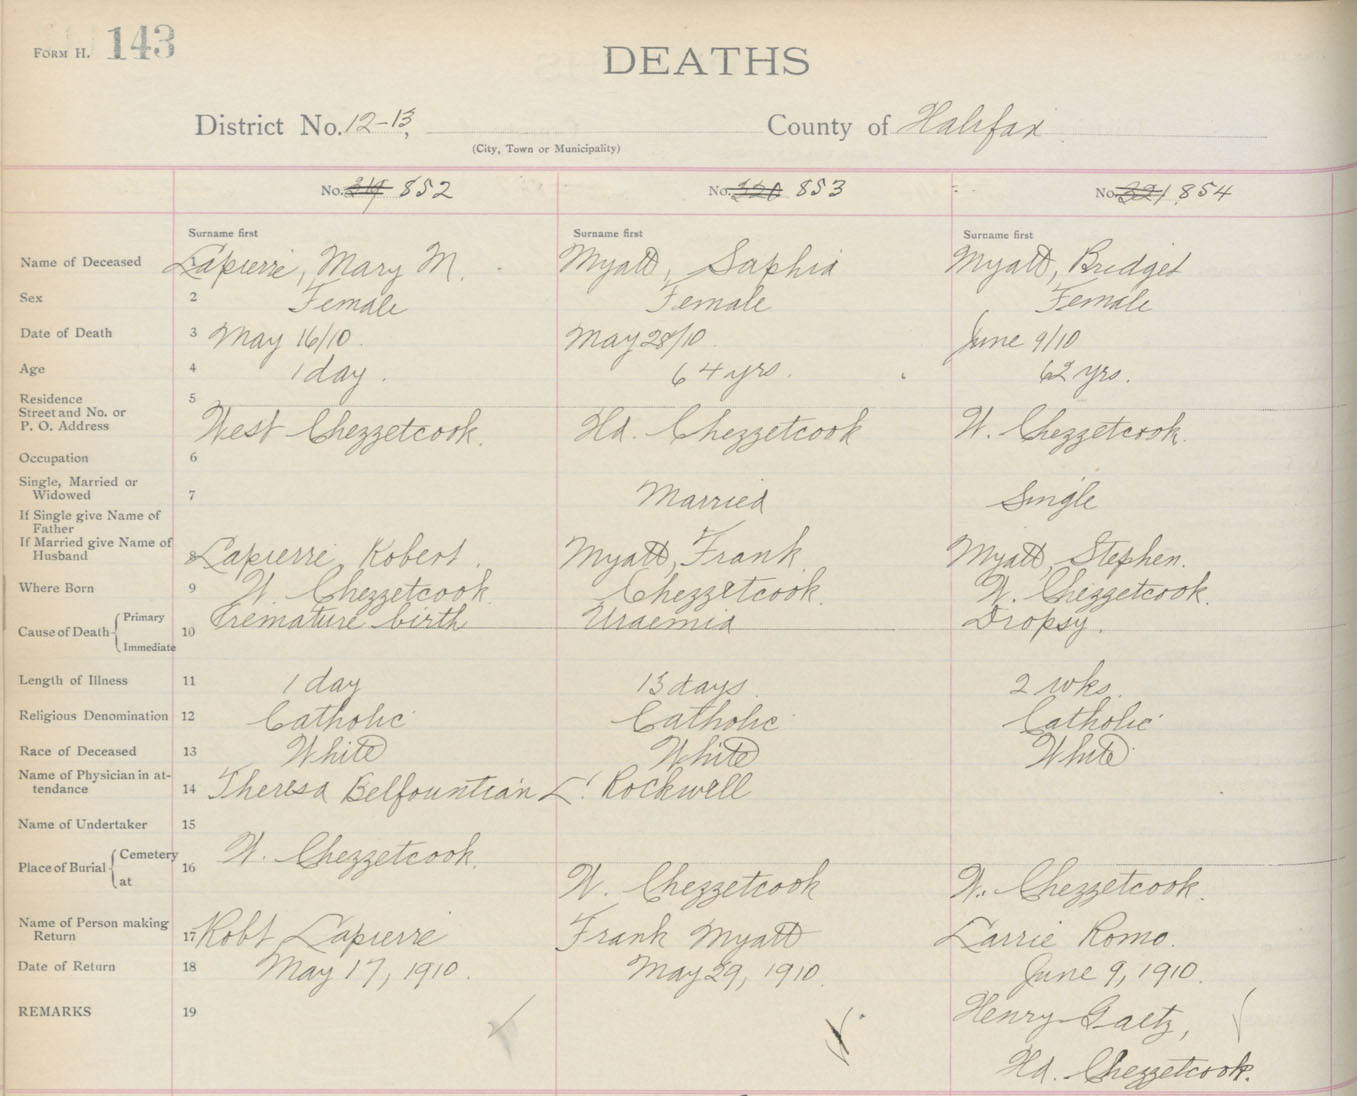 FORM H. 143
DEATHS
District No. 12-13, County of Halifax
(City, Town or Municipality)
No. 319 852 No. 320 853 No. 321 854
Surname first Surname first Surname first
Name of Deceased 1 Lapierre, Mary M. Myatt, Sophia Myatt, Bridget
Sex 2 Female Female Female
Date of Death 3 May 16/10. May 28/10. June 9/10
Age 4 1 day. 64 yrs. 62 yrs.
Residence 5
Street and No. or
P. O. Address West Chezzetcook. Hd. Chezzetcook W. Chezzetcook.
Occupation 6
Single, Married or
Widowed 7 Married Single
If Single give Name of
Father
If Married give Name of
Husband 8 Lapierre Robert. Myatt, Frank Myatt, Stephen.
Where Born 9 W. Chezzetcook. Chezzetcook. W. Chezzetcook.
Primary Premature birth Uraemia Dropsy.
Cause of Death 10
Immediate
Length of Illness 11 1 day 13 days. 2 wks.
Religious Denomination 12 Catholic Catholic Catholic
Race of Deceased 13 White White White
Name of Physician in at-
tendance 14 Theresa Belfountain L. Rockwell
Name of Undertaker 15
Cemetery W. Chezzetcook.
Place of Burial 16
at W. Chezzetcook W. Chezzetcook.
Name of Person making
Return 17 Robt Lapierre Frank Myatt Carrie Romo.
Date of Return 18 May 17, 1910. May 29, 1910. June 9, 1910.
REMARKS 19 Henry Gaetz,
Hd. Chezzetcook.